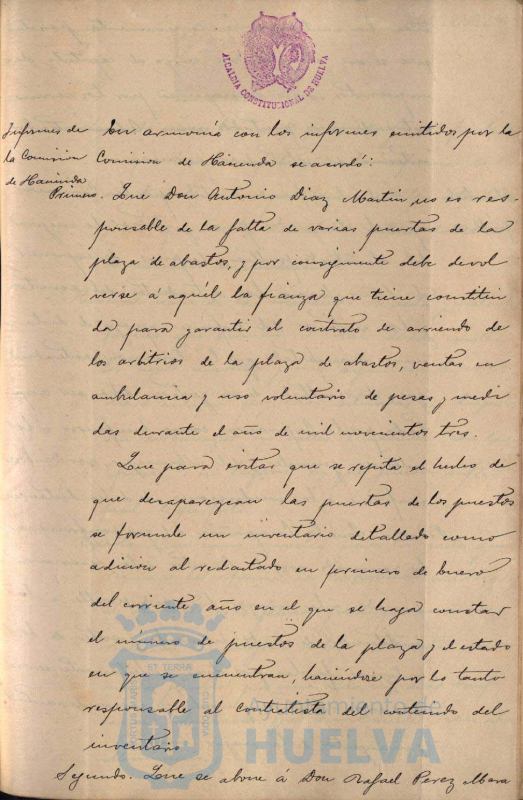 ALCALDIA CONSTITUCIONAL DE HUELVA
Informes de
la Comision
de Hacienda
En armonía con los informes emitidos por la
Comision de Hacienda se acordó:
Primero. Que Don Antonio Diaz Martin no es res-
ponsable de la falta de varias puertas de la
plaza de abastos, y por consiguiente debe devol
verse á aquél la fianza que tiene constitui
da para garantir el contrato de arriendo de
los arbitrios de la plaza de abastos, ventas en
ambulancia y uso voluntario de pesas y medi
das durante el año de mil novecientos tres.
Que para evitar que se repita el hecho de
que desaparezcan las puertas de los puestos
se formule un inventario detallado como
adicion al redactado en primero de Enero
del corriente año en el que se haga constar
el número de puestos de la plaza y el estado
en que se encuentran, haciéndose por lo tanto
responsable al contratista del contenido del
inventario
Segundo. Que se abone á Don Rafael Perez Mora
Ayuntamiento de
HUELVA